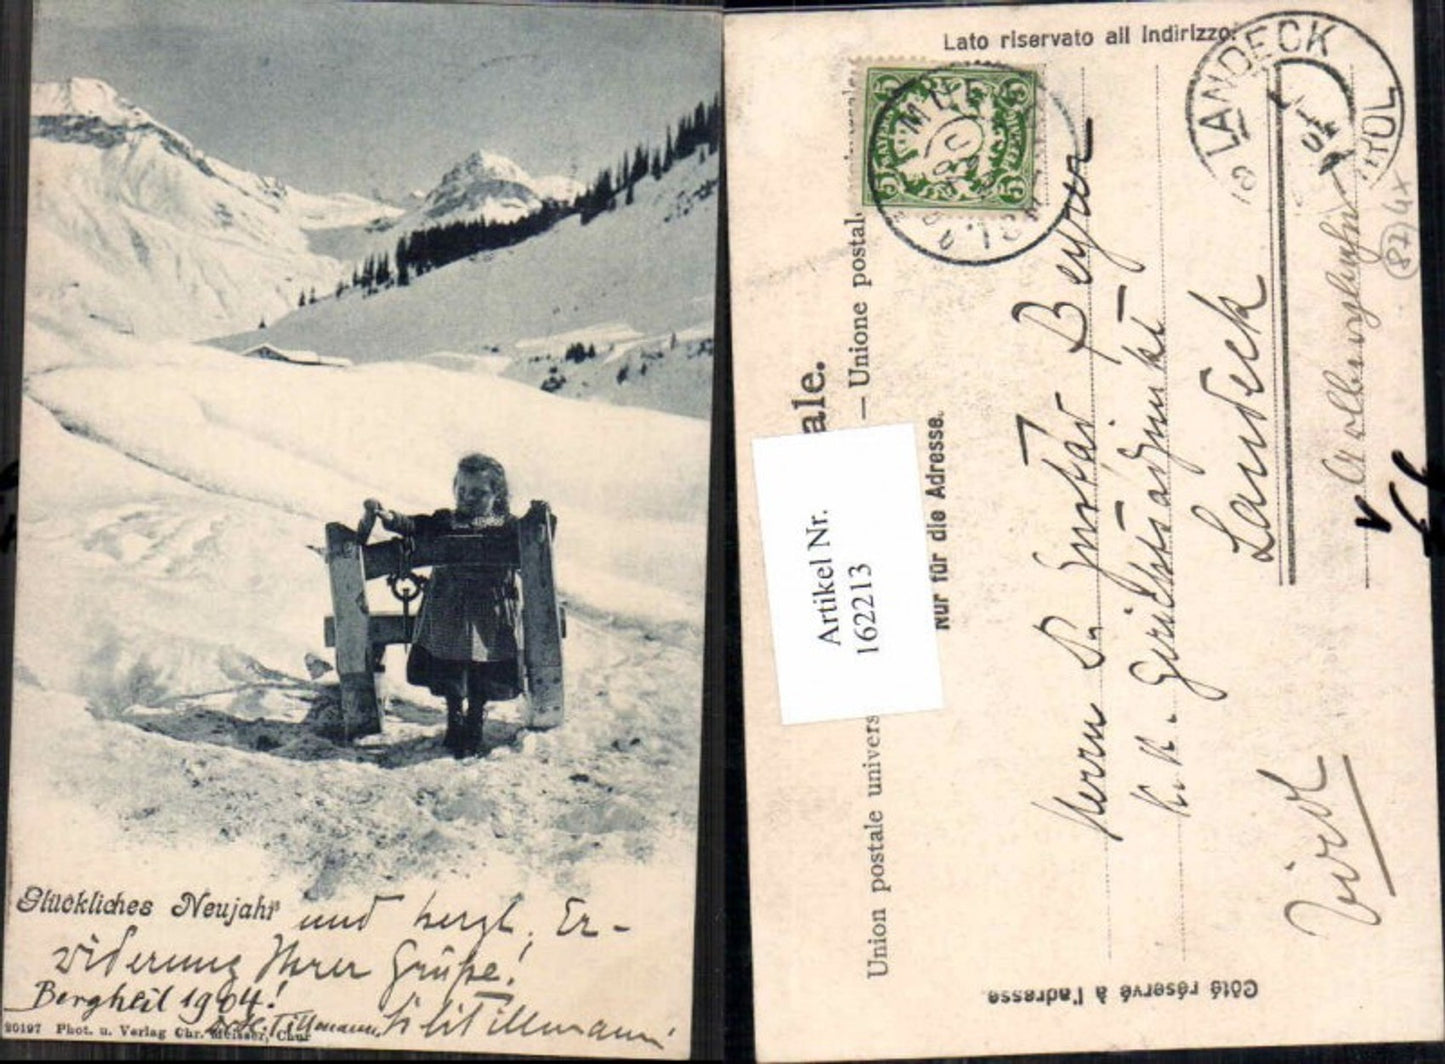 Glückliches Neujahr und herzl. Er-
widerung Ihrer Grüße!
Bergheil 1904!
Tillmann, Tillmann
20197 Phot. u. Verlag Chr. Meisser, Chur
Lato riservato all indirizzo.
LANDECK
TIROL
5 5
ale.
Union postale univers
— Unione postal
Nur für die Adresse.
Artikel Nr.
162213
Herrn Dr. Gustav Beyrer
k. k. Gerichtsadjunkt
Landeck
Tirol
Côté réservé à l'adresse.